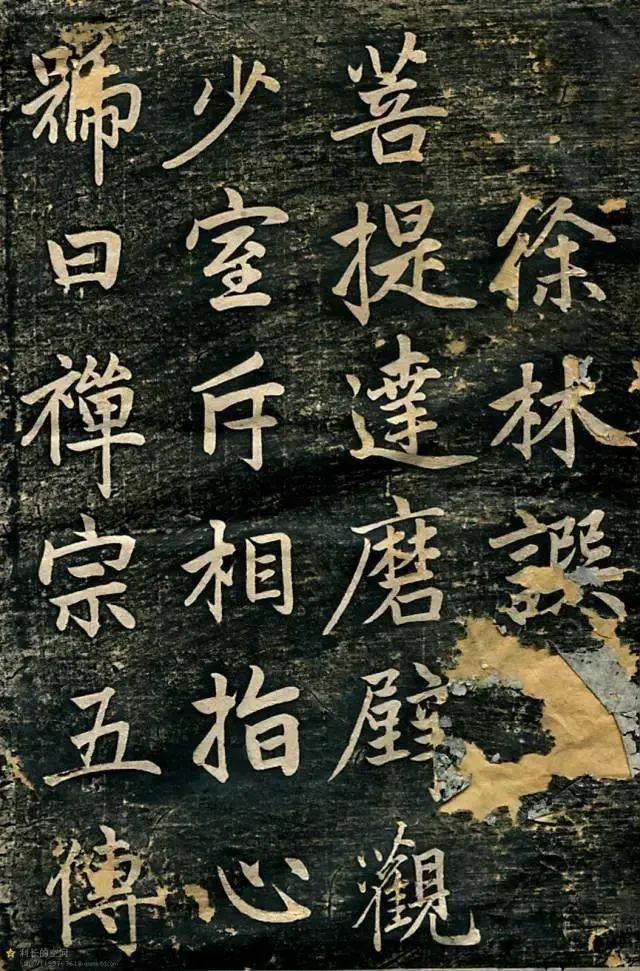 徐林譔
菩提達磨壁觀
少室斥相指心
號曰禪宗五傳